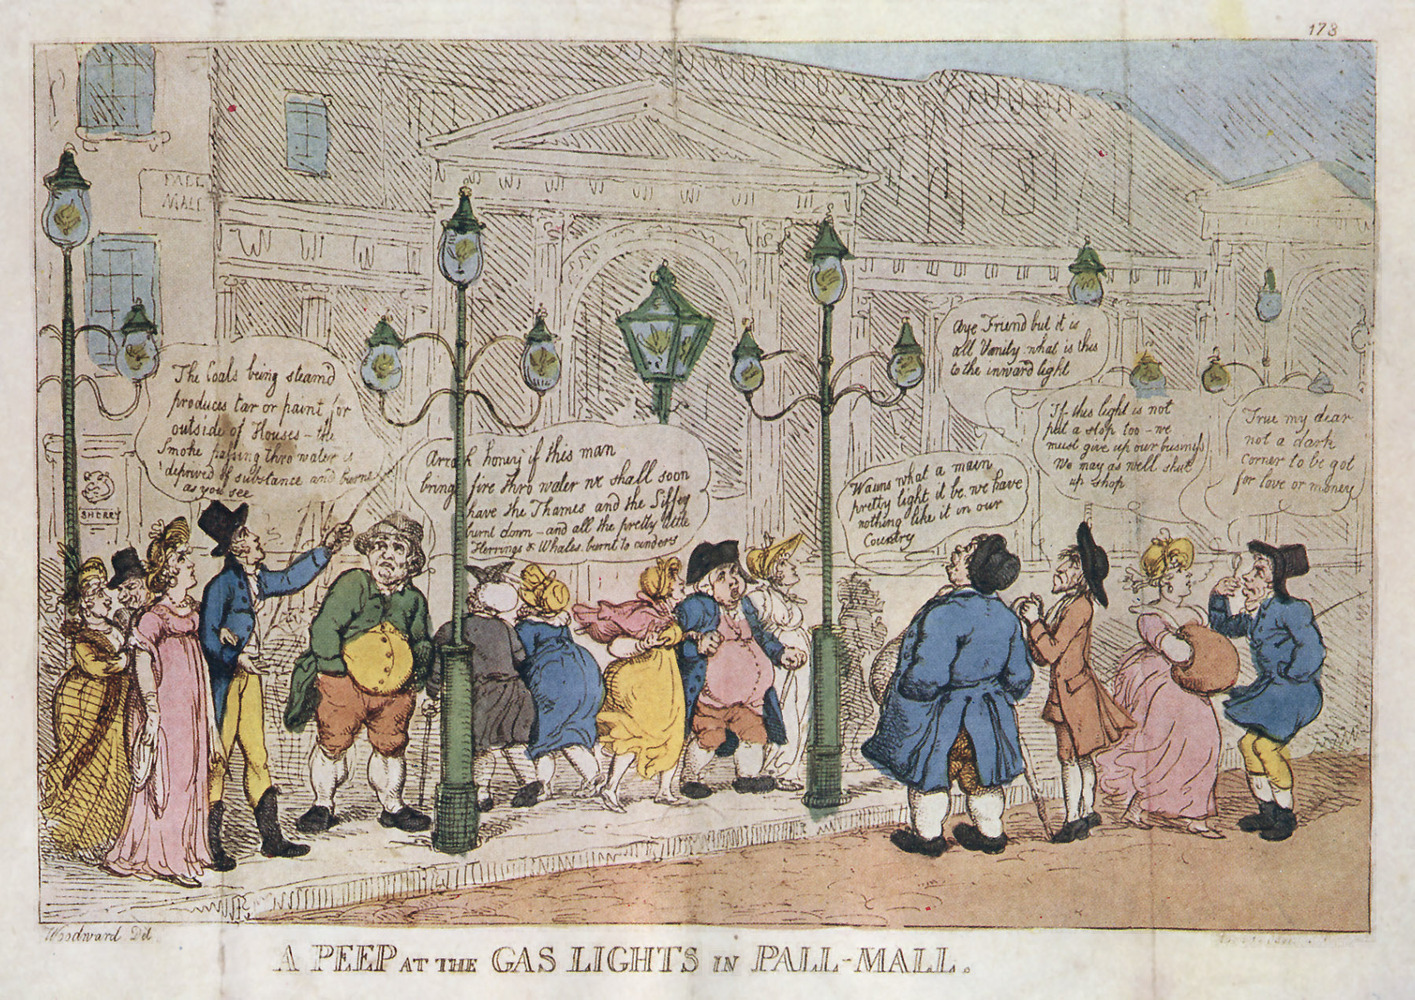 173
PALL
MALL
The Coals being steamd
produces tar or paint for
outside of Houses - the
Smoke passing thro water is
deprived of substance and burns
as you see
Arrah honey if this man
brings fire thro water we shall soon
have the Thames and the Liffey
burnt down - and all the pretty little
Herrings & Whales burnt to cinders
Wauns what a main
pretty light it be. we have
nothing like it in our
Country
Aye Friend but it is
all Vanity. what is this
to the inward light
If this light is not
put a stop too - we
must give up our business
We may as well shut
up shop
True my dear
not a dark
corner to be got
for love or money
SHERRY
Woodward Del
A PEEP AT THE GAS LIGHTS IN PALL-MALL.